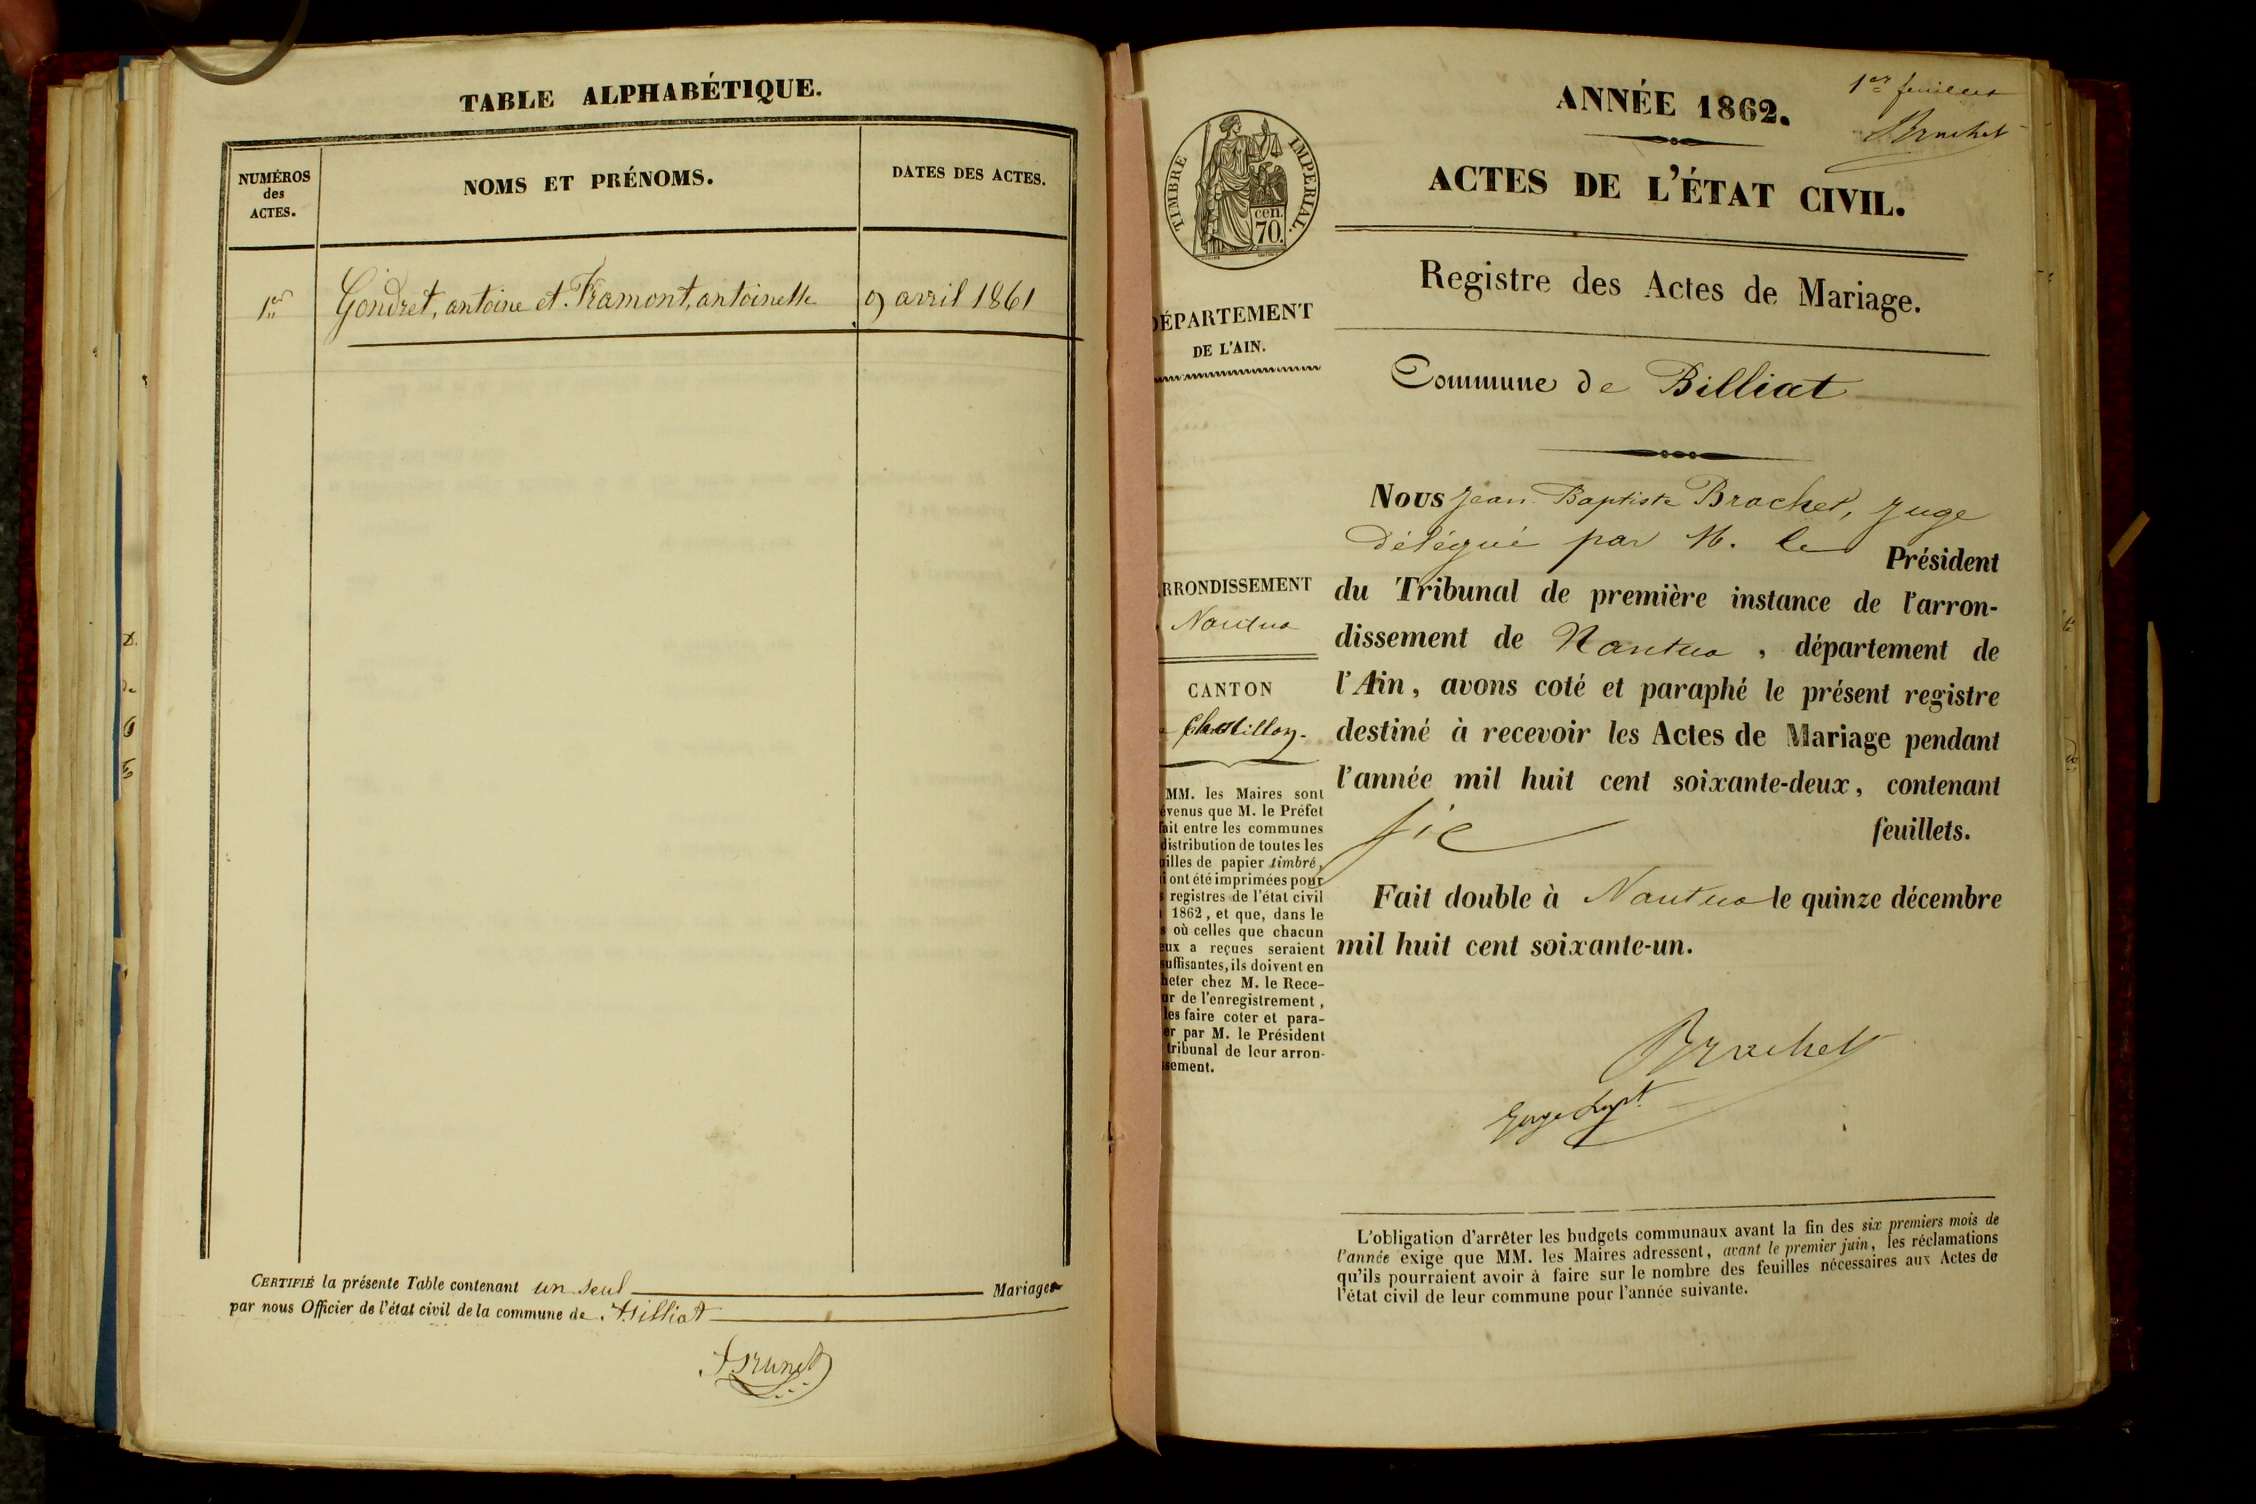 TABLE ALPHABÉTIQUE.
NUMÉROS
des
ACTES.
NOMS ET PRÉNOMS.
DATES DES ACTES.
1er Gondret, antoine et Framont, antoinette 9 avril 1861
CERTIFIÉ la présente Table contenant un seul Mariage
par nous Officier de l'état civil de la commune de Billiat
Brunet
1er feuillet
Brachet
ANNÉE 1862.
ACTES DE L'ÉTAT CIVIL.
TIMBRE IMPERIAL.
cen.
70.
Registre des Actes de Mariage.
DÉPARTEMENT
DE L'AIN.
Commune de Billiat
Nous Jean Baptiste Brachet, Juge
délégué par M. le Président
du Tribunal de première instance de l'arron-
dissement de Nantua, département de
l'Ain, avons coté et paraphé le présent registre
destiné à recevoir les Actes de Mariage pendant
l'année mil huit cent soixante-deux, contenant
six feuillets.
Fait double à Nantua le quinze décembre
mil huit cent soixante-un.
Brachet
Juge
RRONDISSEMENT
Nantua
CANTON
Chatillon
MM. les Maires sont
évenus que M. le Préfet
ait entre les communes
distribution de toutes les
uilles de papier timbré,
i ont été imprimées pour
s registres de l'état civil
1862, et que, dans le
s où celles que chacun
eux a reçues seraient
suffisantes, ils doivent en
heter chez M. le Rece-
ur de l'enregistrement,
les faire coter et para-
er par M. le Président
tribunal de leur arron-
ssement.
L'obligation d'arrêter les budgets communaux avant la fin des six premiers mois de
l'année exige que MM. les Maires adressent, avant le premier juin, les réclamations
qu'ils pourraient avoir à faire sur le nombre des feuilles nécessaires aux Actes de
l'état civil de leur commune pour l'année suivante.